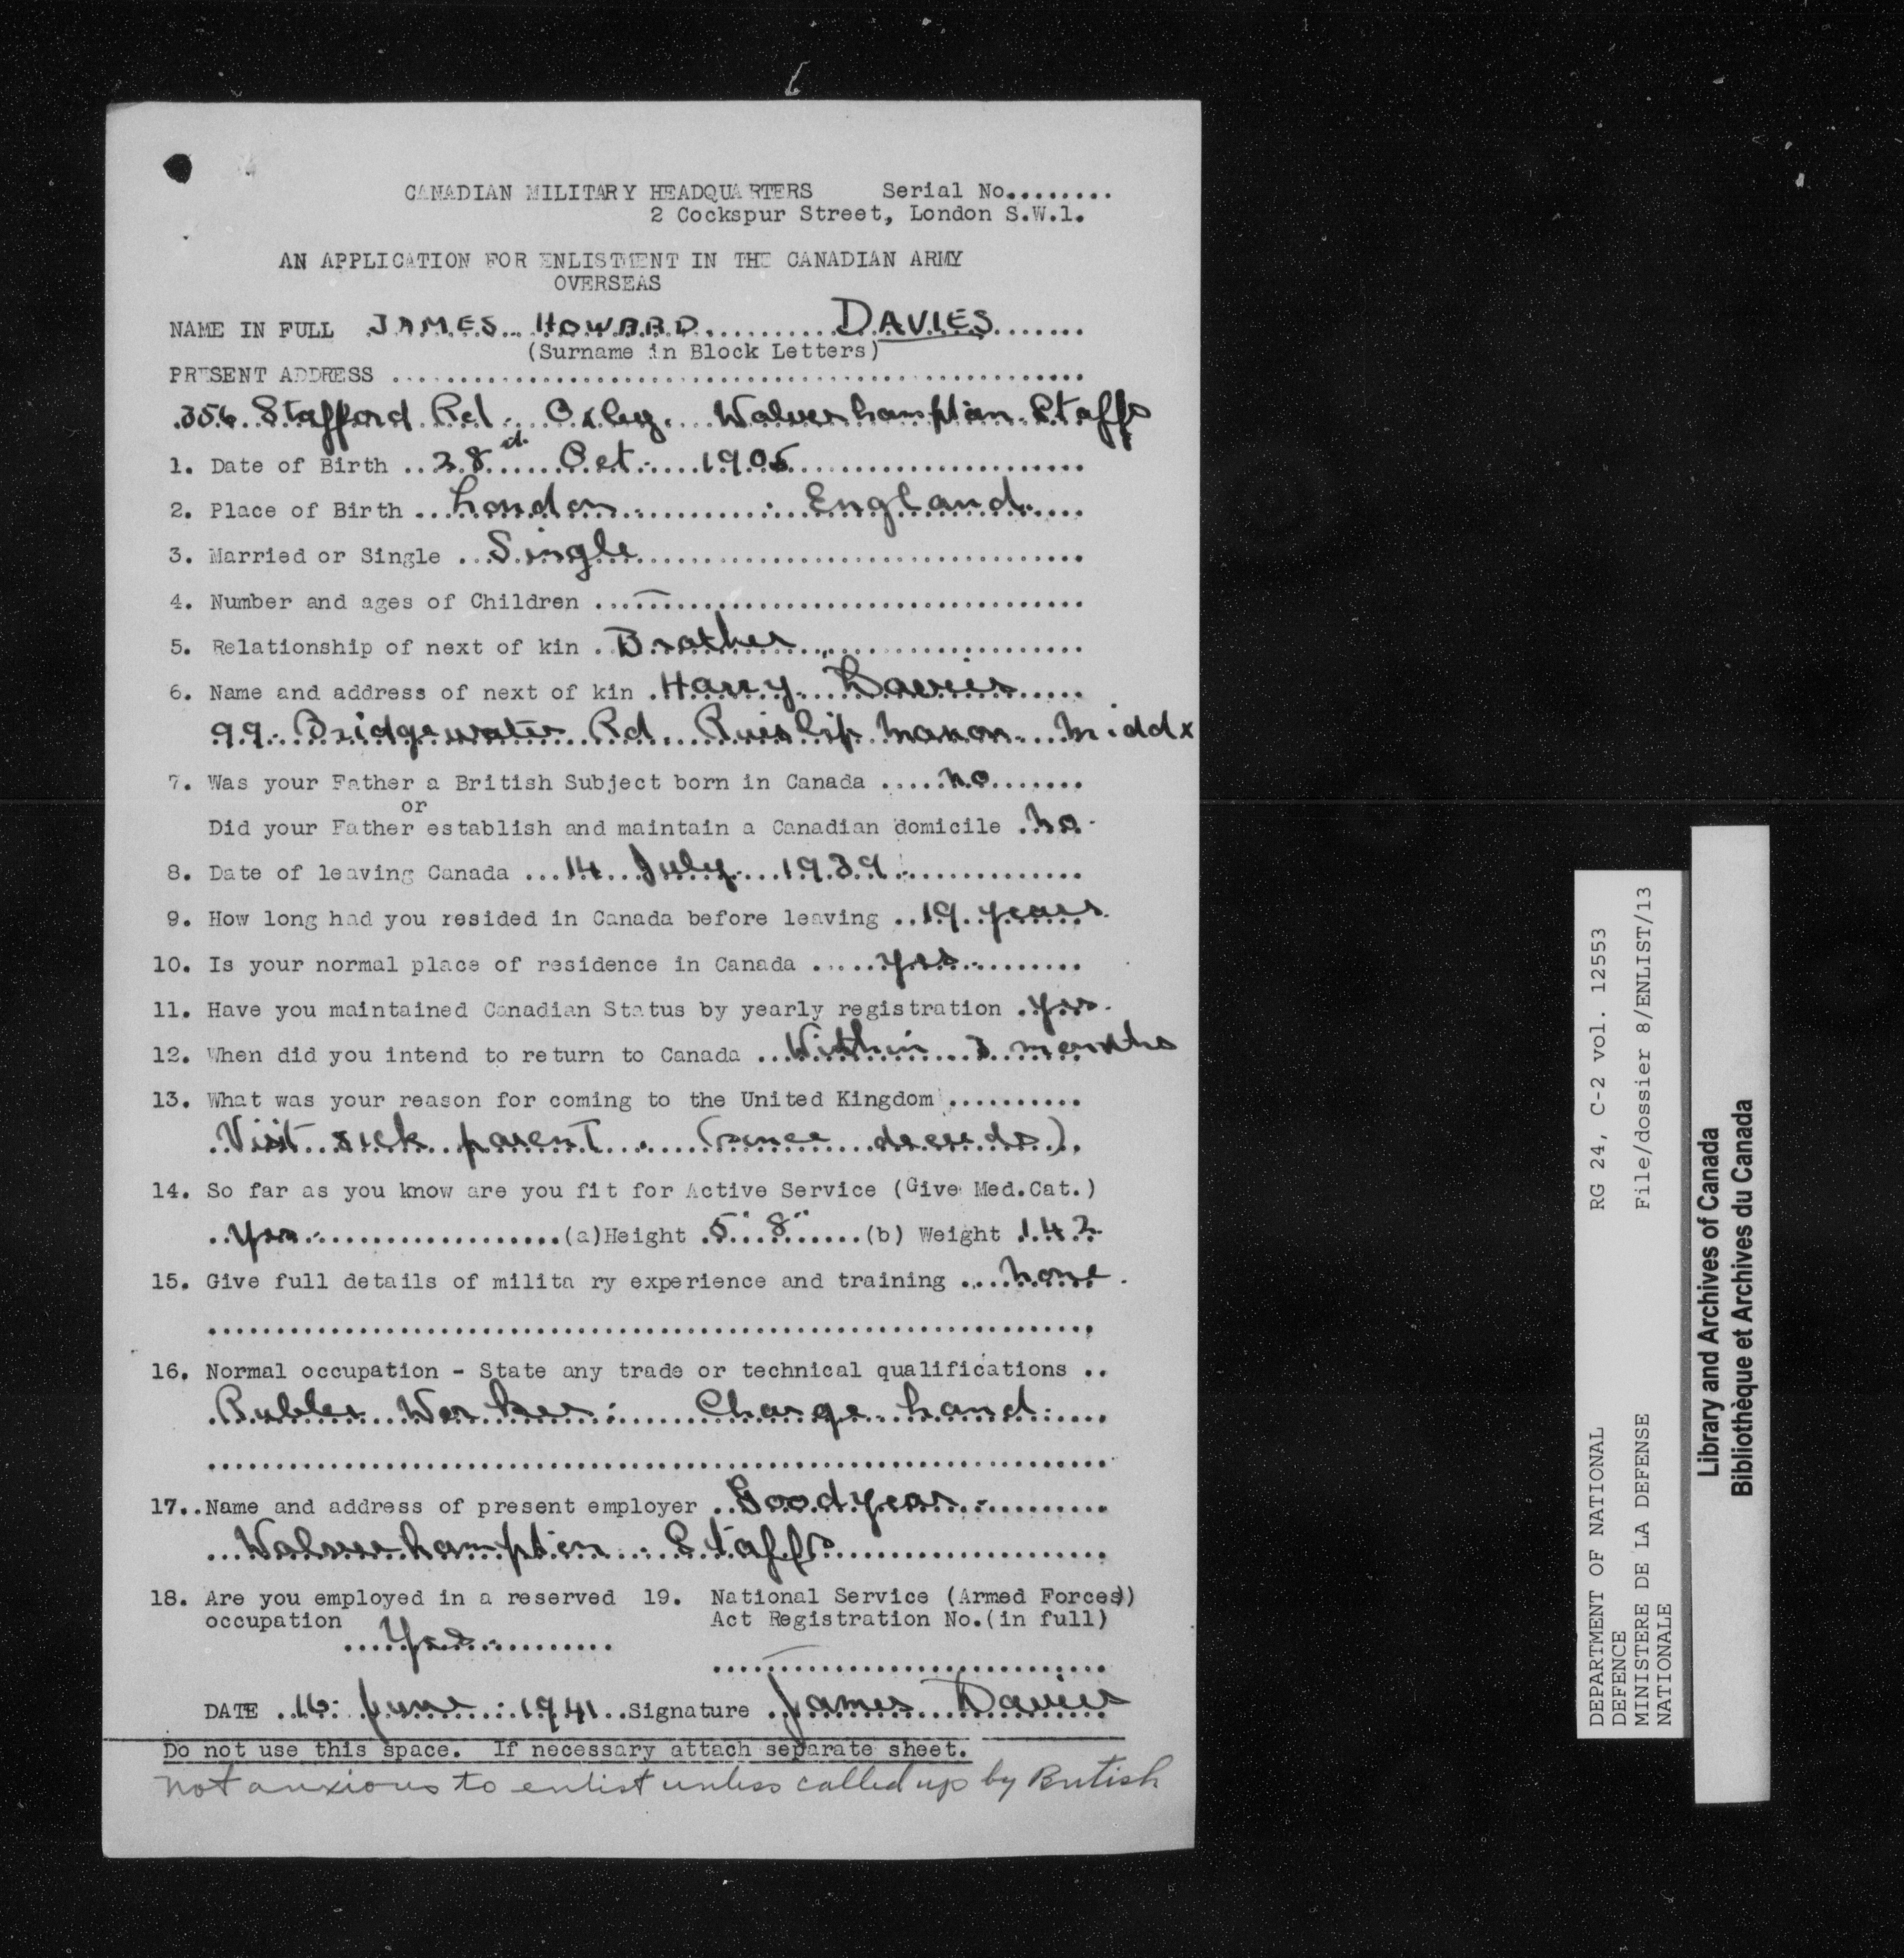 CANADIAN MILITARY HEADQUARTERS Serial No.........
2 Cockspur Street, London S.W.1.
AN APPLICATION FOR ENLISTMENT IN THE CANADIAN ARMY
OVERSEAS
NAME IN FULL JAMES HOWARD DAVIES
(Surname in Block Letters)
PRESENT ADDRESS
356 Stafford Rd. Oxley. Wolverhampton Staffs
1. Date of Birth 28th Oct. 1905
2. Place of Birth London England.
3. Married or Single Single
4. Number and ages of Children —
5. Relationship of next of kin Brother
6. Name and address of next of kin Harry Davies
99 Bridgewater Rd. Ruislip Manor Middx
7. Was your Father a British Subject born in Canada no
or
Did your Father establish and maintain a Canadian domicile no.
8. Date of leaving Canada 14 July 1939
9. How long had you resided in Canada before leaving 19 years.
10. Is your normal place of residence in Canada yes.
11. Have you maintained Canadian Status by yearly registration yes.
12. When did you intend to return to Canada Within 3 months
13. What was your reason for coming to the United Kingdom
Visit sick parent. (since )
14. So far as you know are you fit for Active Service (Give Med.Cat.)
Yes (a)Height 5" 8" (b) Weight 142
15. Give full details of milita ry experience and training none.
16. Normal occupation - State any trade or technical qualifications ..
Rubber Worker: Charge hand.
17. Name and address of present employer Goodyear.
Wolverhampton. Staffs
18. Are you employed in a reserved 19. National Service (Armed Forces)
occupation Act Registration No.(in full)
Yes. —
DATE 16. June. 1941 Signature James Davies
Do not use this space. If necessary attach separate sheet.
not anxious to enlist unless called up by British
DEPARTMENT OF NATIONAL RG 24, C-2 vol. 12553
DEFENCE
MINISTERE DE LA DEFENSE File/dossier 8/ENLIST/13
NATIONALE
Library and Archives of Canada
Bibliothèque et Archives du Canada